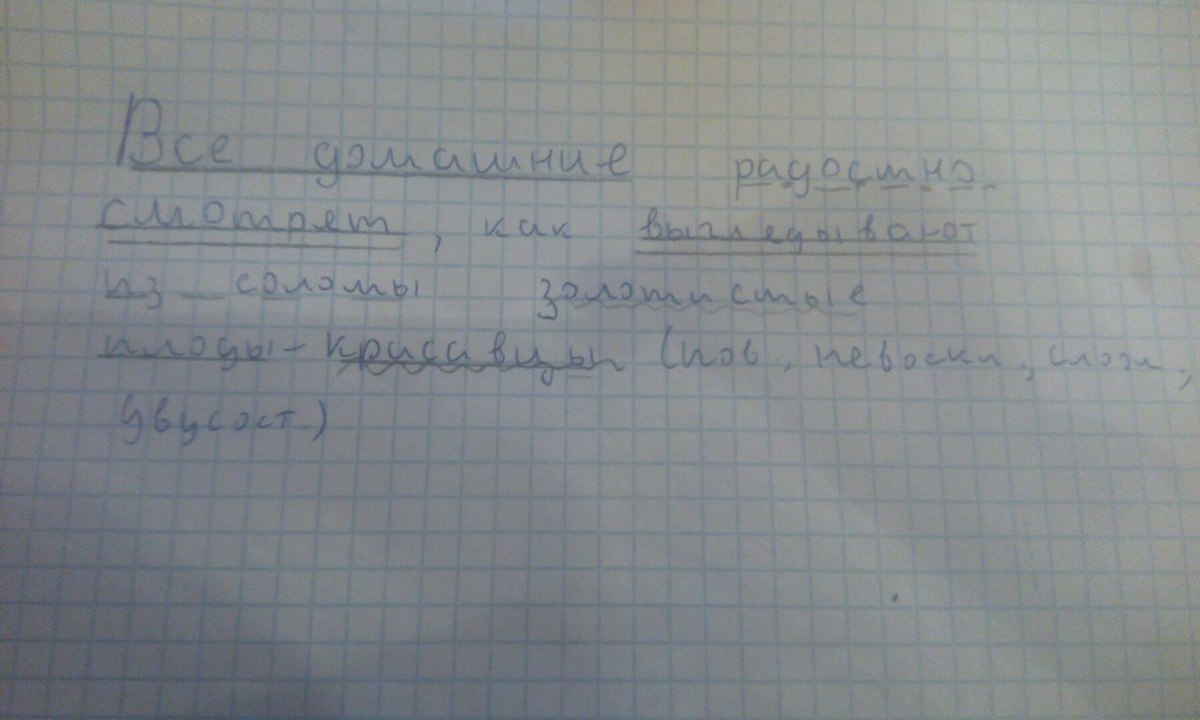 Все домашние радостно
смотрят, как выгледывают
из соломы золотистые
плоды-красавцы (пов., невоскл, сложн,
двусост.)